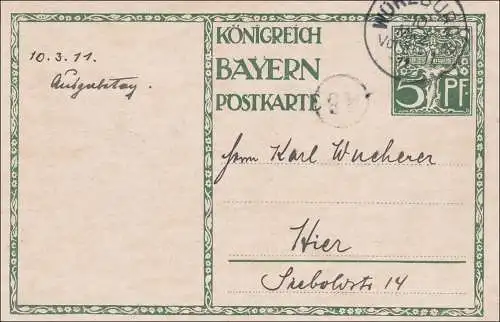 10.3.11.
Ausgabetag.
KÖNIGREICH
BAYERN
POSTKARTE
WÜRZBURG
5 PF
Herrn Karl Wucherer
Hier
Seeboldstr 14